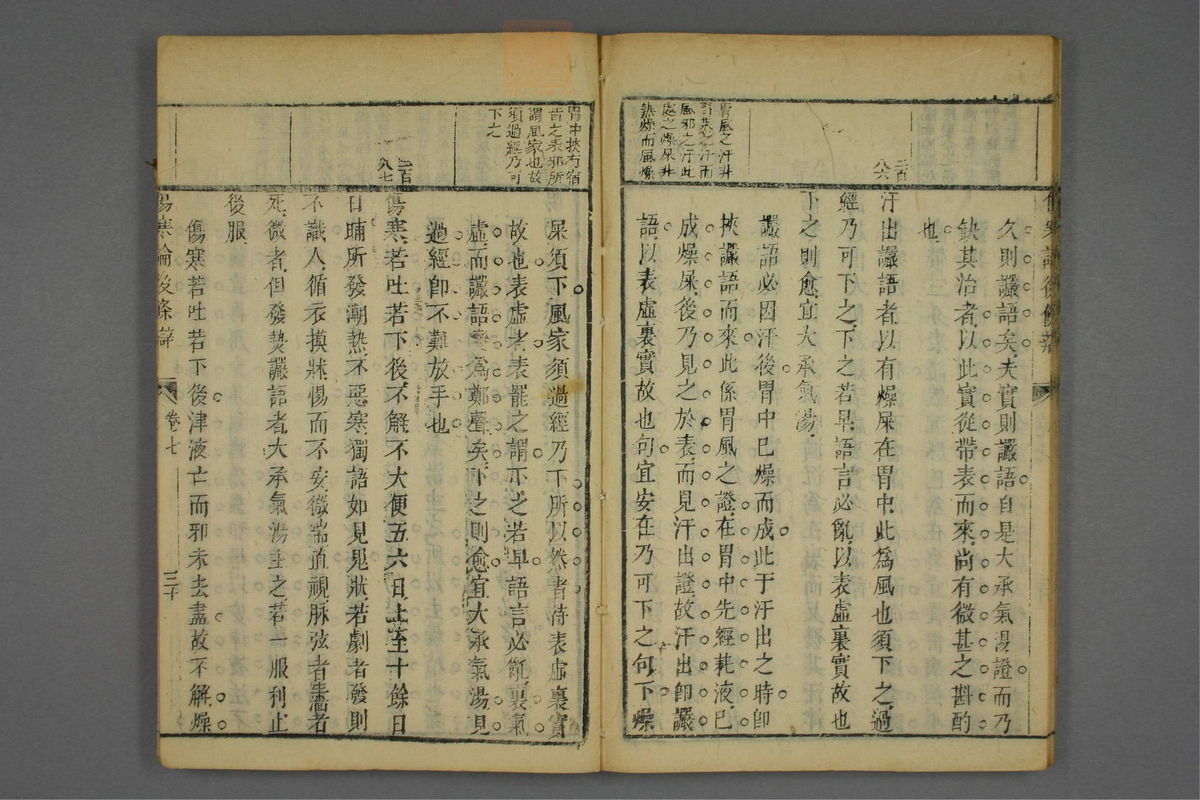 久則讝語矣夫實則讝語自是大承氣湯證而乃
缺其治者以此實從帶表而來尚有微甚之斟酌
也
二百八六
汗出讝語者以有燥屎在胃中此爲風也須下之過
經乃可下之下之若早語言必亂以表虛裏實故也
下之則愈宜大承氣湯
胃風之汗非
胃熱之汗而
風邪之汗此
處之燥屎非
熱燥而風燥
讝語必因汗後胃中巳燥而成此于汗出之時卽
挾讝語而來此係胃風之證在胃中先經耗液巳
成燥屎後乃見之於表而見汗出證故汗出卽讝
語以表虛裏實故也句宜安在乃可下之句下燥
胃中挾有宿
昔之來邪所
謂風家也故
須過經乃可
下之
屎須下風家須過經乃下所以然者待表虛裏實
故也表虛者表罷之謂下之若早語言必亂裏氣
虛而讝語變爲鄭聲矣下之則愈宜大承氣湯見
過經卽不難放手也
二百八七
傷寒若吐若下後不解不大便五六日上至十餘日
日晡所發潮熱不惡寒獨語如見鬼狀若劇者發則
不識人循衣摸牀惕而不安微喘直視脉弦者生濇者
死微者但發熱讝語者大承氣湯主之若一服利止
後服
傷寒若吐若下後津液亡而邪未去盡故不解燥
傷寒論後條辯
卷七
三十